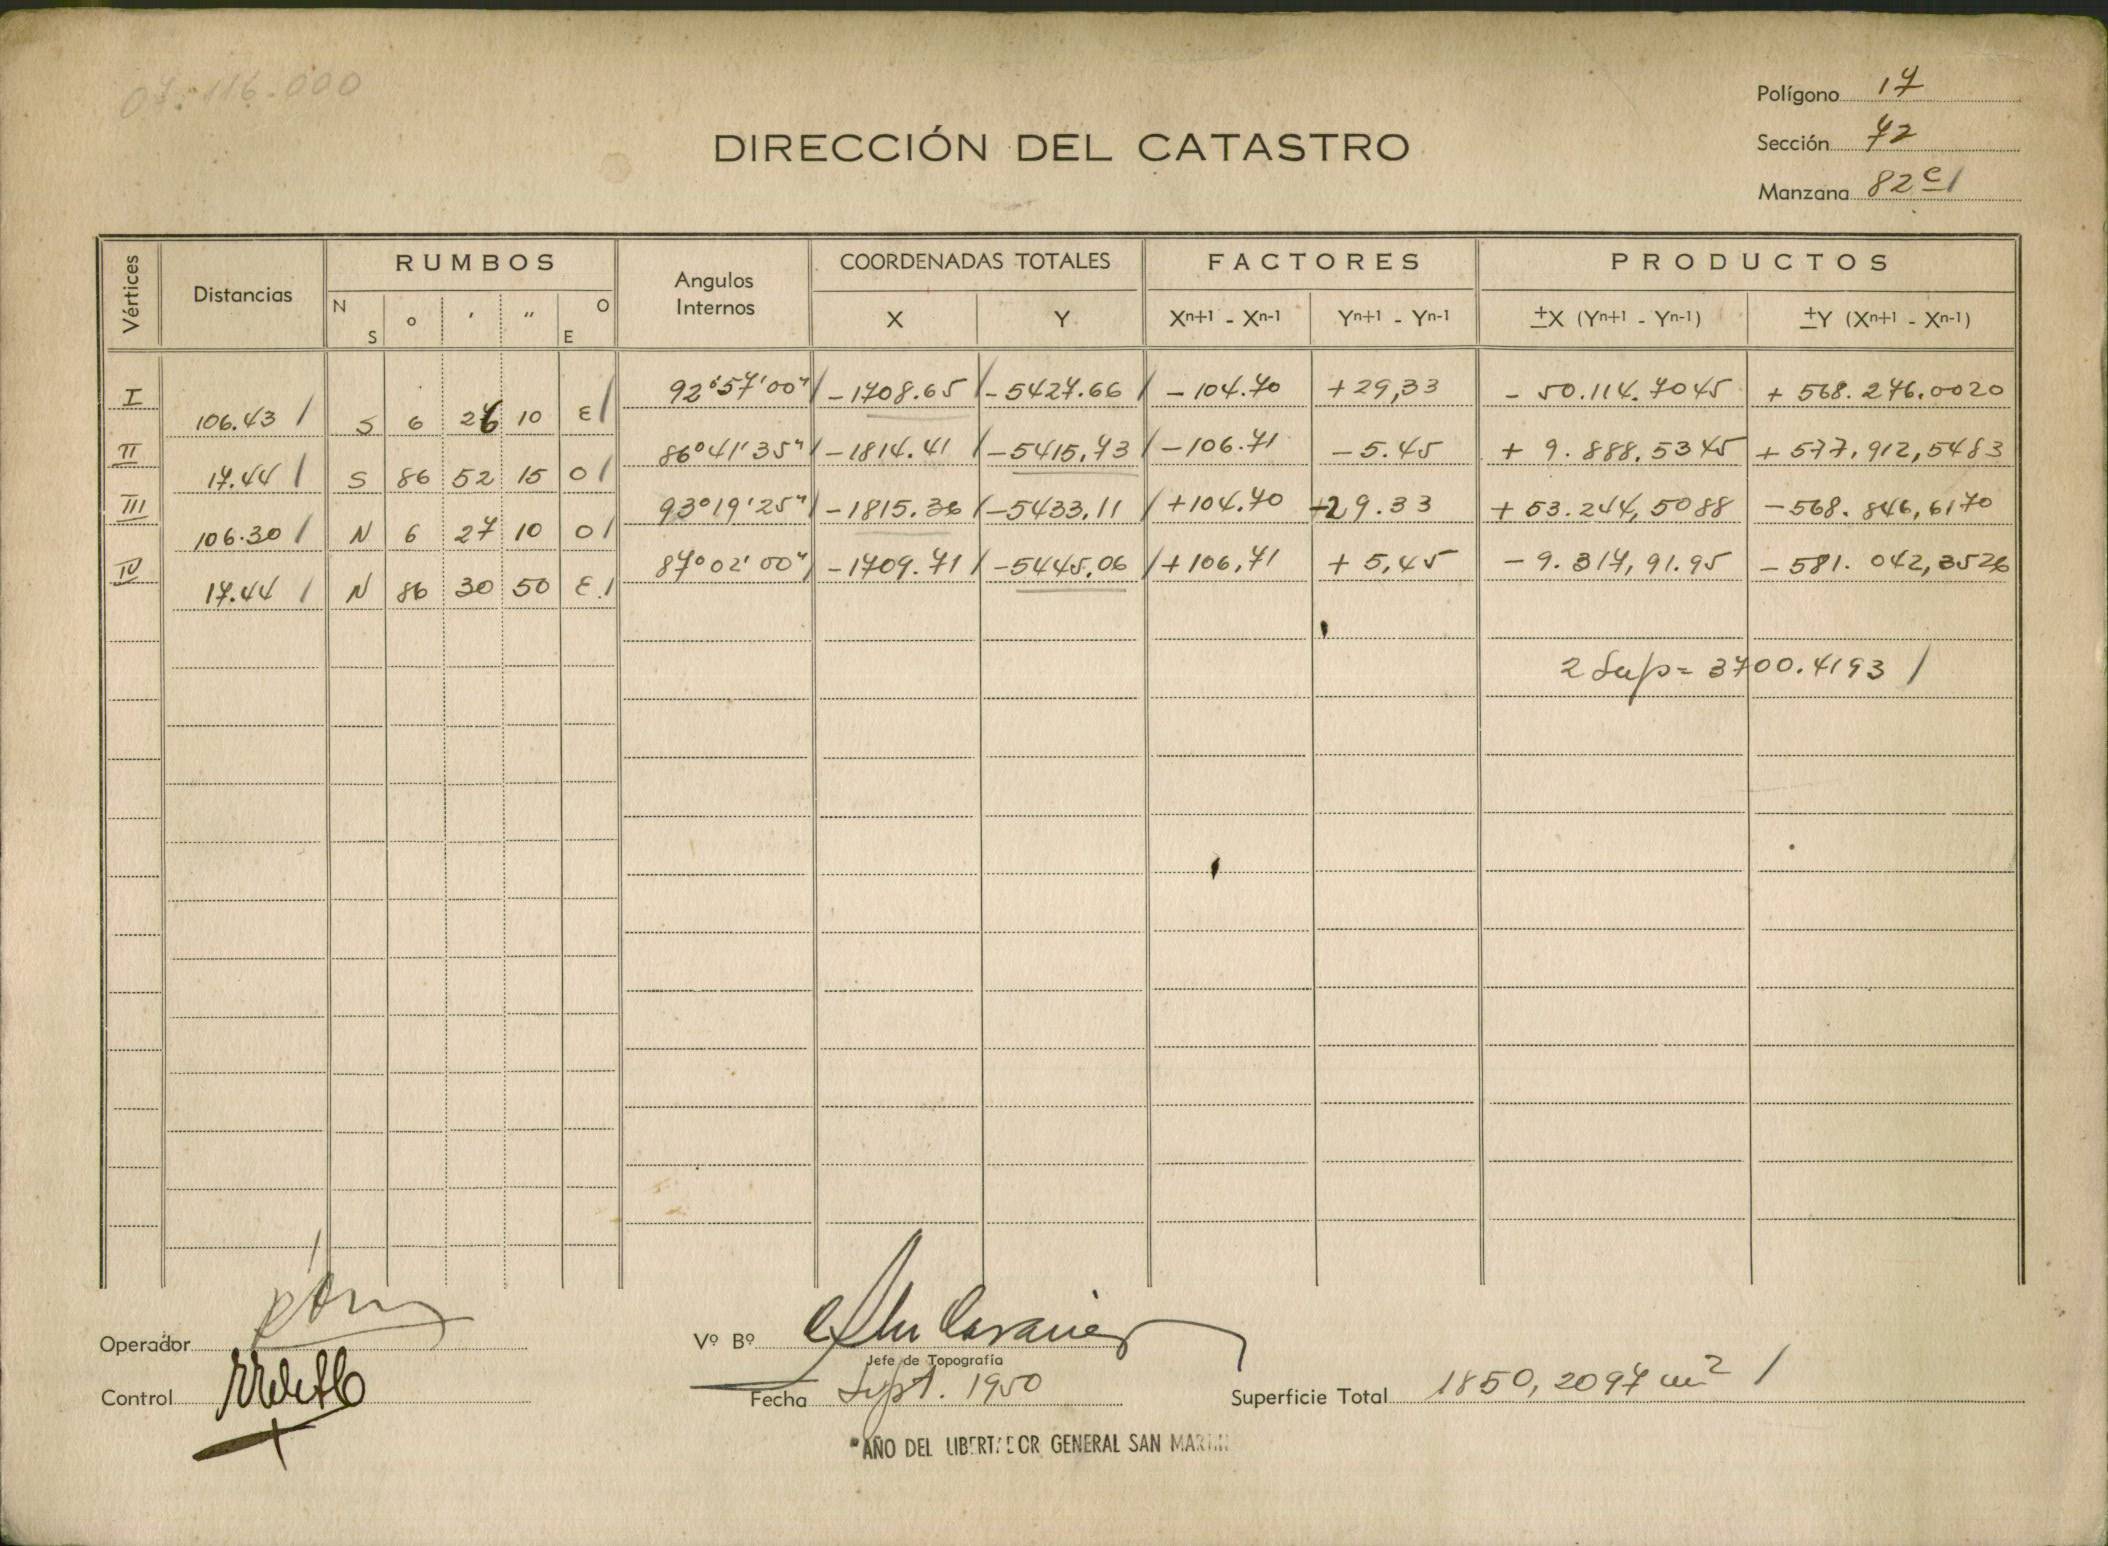 07.116.000
Polígono 17
DIRECCIÓN DEL CATASTRO
Sección 72
Manzana 82 c /
Vértices Distancias RUMBOS Angulos Internos COORDENADAS TOTALES FACTORES PRODUCTOS
N S o ' " O E X Y Xn+1 - Xn-1 Yn+1 - Yn-1 ±X (Yn+1 - Yn-1) ±Y (Xn+1 - Xn-1)
I 92°57'00" / -1708.65 / -5427.66 / -104.70 +29,33 - 50.114.7045 + 568.276.0020
106.43 / S 6 26 10 E /
II 86°41'35" / -1814.41 / -5415,73 / -106.71 -5.45 + 9.888.5345 + 577.912,5483
17.44 / S 86 52 15 O /
III 93°19'25" / -1815.36 / -5433.11 / +104.70 +29.33 + 53.244,5088 -568.846,6170
106.30 / N 6 27 10 O /
IV 87°02'00" / -1709.71 / -5445.06 / +106,71 + 5,45 - 9.317,91.95 - 581.042,3526
17.44 / N 86 30 50 E. /
2 Sup = 3700.4193 /
Operador
Vº Bº
Jefe de Topografía
Control
Fecha Sept. 1950
Superficie Total 1850,2097 m2 /
"AÑO DEL LIBERTADOR GENERAL SAN MARTIN